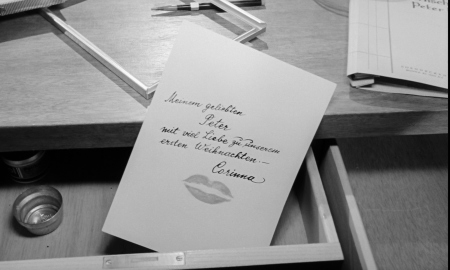 Peter
Meinem geliebten
Peter
mit viel Liebe zu unserem
ersten Weihnachten —
Corinna